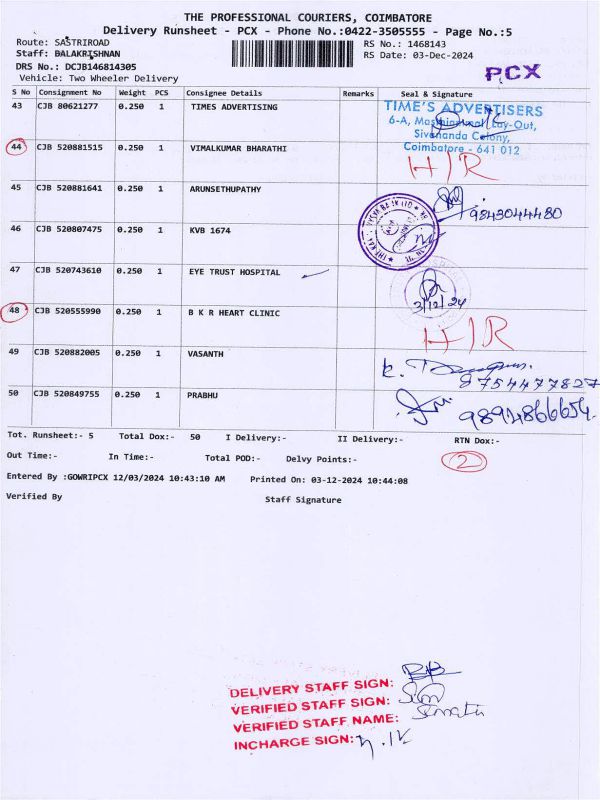 THE PROFESSIONAL COURIERS, COIMBATORE
Delivery Runsheet - PCX - Phone No.:0422-3505555 - Page No.:5
Route: SASTRIROAD RS No.: 1468143
Staff: BALAKRISHNAN RS Date: 03-Dec-2024
DRS No.: DCJB146814305
Vehicle: Two Wheeler Delivery PCX
S No Consignment No Weight PCS Consignee Details Remarks Seal & Signature
43 CJB 80621277 0.250 1 TIMES ADVERTISING
TIME'S ADVERTISERS
6-A, Lay-Out,
Sivananda Colony,
Coimbatore - 641 012
44 CJB 520881515 0.250 1 VIMALKUMAR BHARATHI H/R
45 CJB 520881641 0.250 1 ARUNSETHUPATHY 9843044480
46 CJB 520807475 0.250 1 KVB 1674
47 CJB 520743610 0.250 1 EYE TRUST HOSPITAL 3/12/24
48 CJB 520555990 0.250 1 B K R HEART CLINIC H/R
49 CJB 520882005 0.250 1 VASANTH 8754477827
50 CJB 520849755 0.250 1 PRABHU 9894866654
Tot. Runsheet:- 5 Total Dox:- 50 I Delivery:- II Delivery:- RTN Dox:-
Out Time:- In Time:- Total POD:- Delvy Points:- 2
Entered By :GOWRIPCX 12/03/2024 10:43:10 AM Printed On: 03-12-2024 10:44:08
Verified By Staff Signature
DELIVERY STAFF SIGN:
VERIFIED STAFF SIGN:
VERIFIED STAFF NAME:
INCHARGE SIGN: